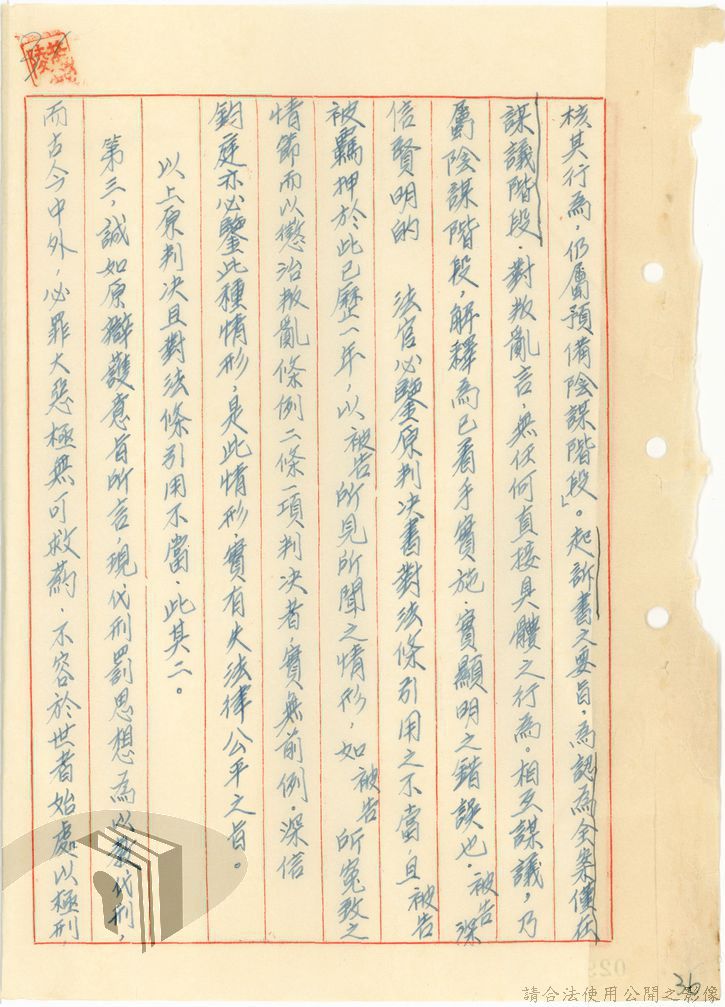 核其行為，仍屬預備陰謀階段」。起訴書之要旨，為認為全案僅在
謀議階段，對叛亂言，無任何直接具體之行為。相互謀議，乃
屬陰謀階段，解釋為已着手實施，實顯明之錯誤也。被告深
信賢明的　法官必鑒原判決書對法條引用之不當，且被告
被羈押於此已歷一年，以被告所見所聞之情形，如被告所冤致之
情節而以懲治叛亂條例二條一項判決者，實無前例。深信
鈞庭亦必鑒此種情形，是此情形，實有失法律公平之旨。
以上原判決且對法條引用不當，此其二。
第三，誠如原辯護意旨所言，現代刑罰思想為以教代刑，
而古今中外，必罪大惡極無可救葯，不容於世者始處以極刑，
36
請合法使用公開之影像